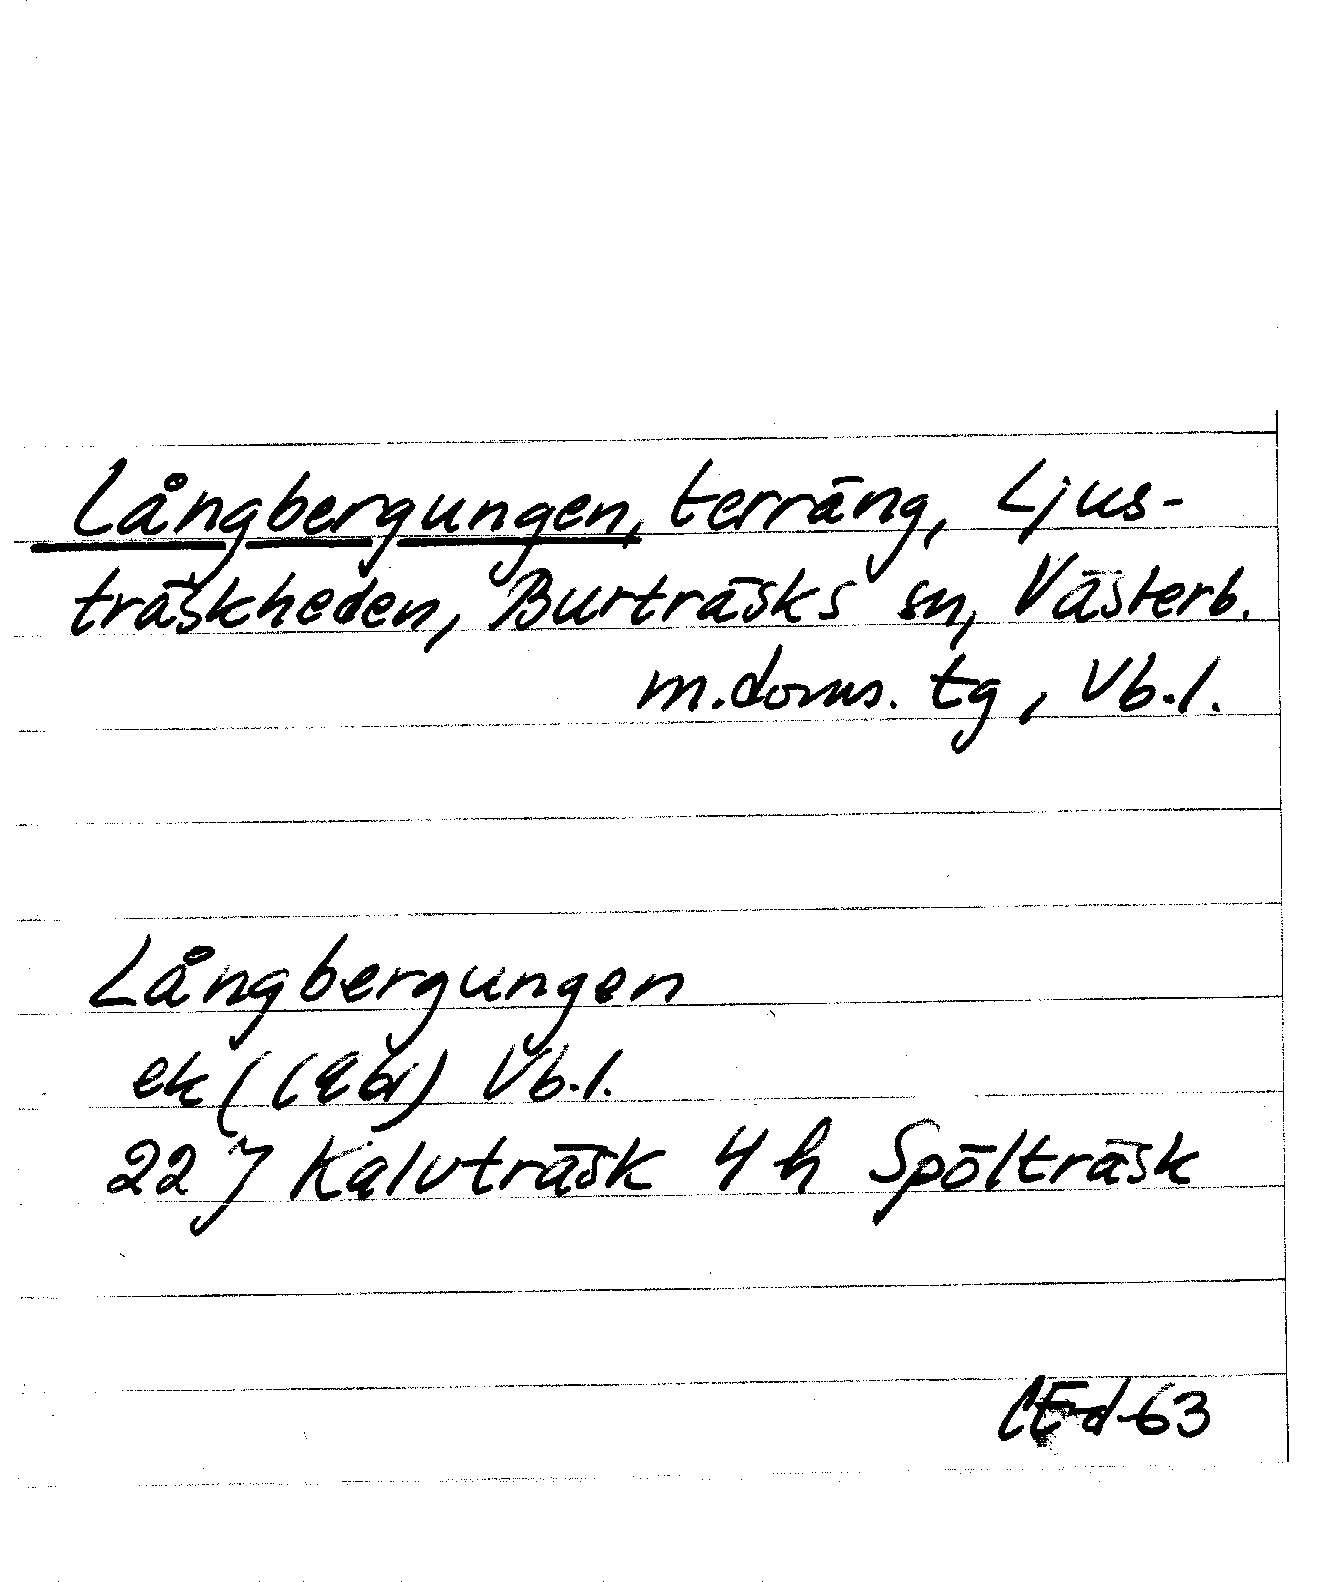 Långbergungen, terräng, Ljus-
träskheden, Burträsks sn, Västerb.
m.doms. tg, Vb.l.
Långbergungen
ek Vb.l.
22 J Kalvträsk 4 h Spölträsk
CEd-63